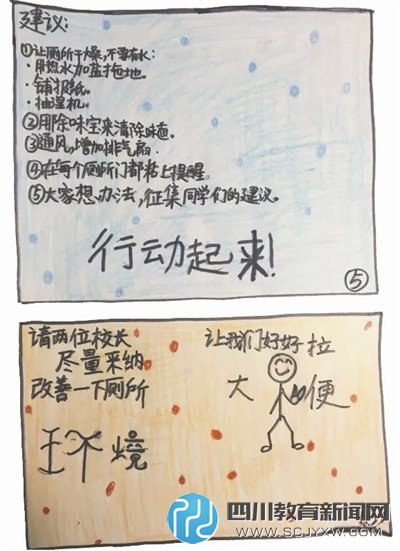 建议：
①让厕所干燥，不要有水：
·用热水加盐拖地。
·铺报纸。
·抽湿机。
②用除味宝来清除味道。
③通风，增加排气扇。
④在每个厕所门都粘上提醒。
⑤大家想办法，征集同学们的建议。
行动起来！
⑤
请两位校长
尽量采纳
改善一下厕所
环境
让我们好好拉
大便
四川教育新闻网
WWW.SCJYXW.COM